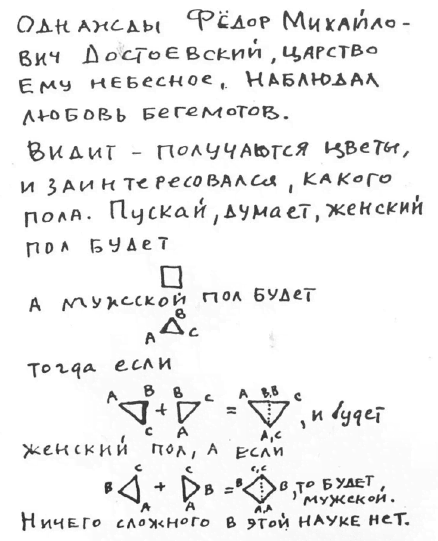 Однажды Фёдор Михайло-
вич Достоевский, царство
ему небесное, наблюдал
любовь бегемотов.
Видит - получаются цветы,
и заинтересовался, какого
пола. Пускай, думает, женский
пол будет
а мужской пол будет
B
A C
тогда если
A B B C A B,B C
+ = , и будет
C A A,C
женский пол, а если
C C C,C
B + B = B B , то будет,
A A A,A мужской.
Ничего сложного в этой науке нет.